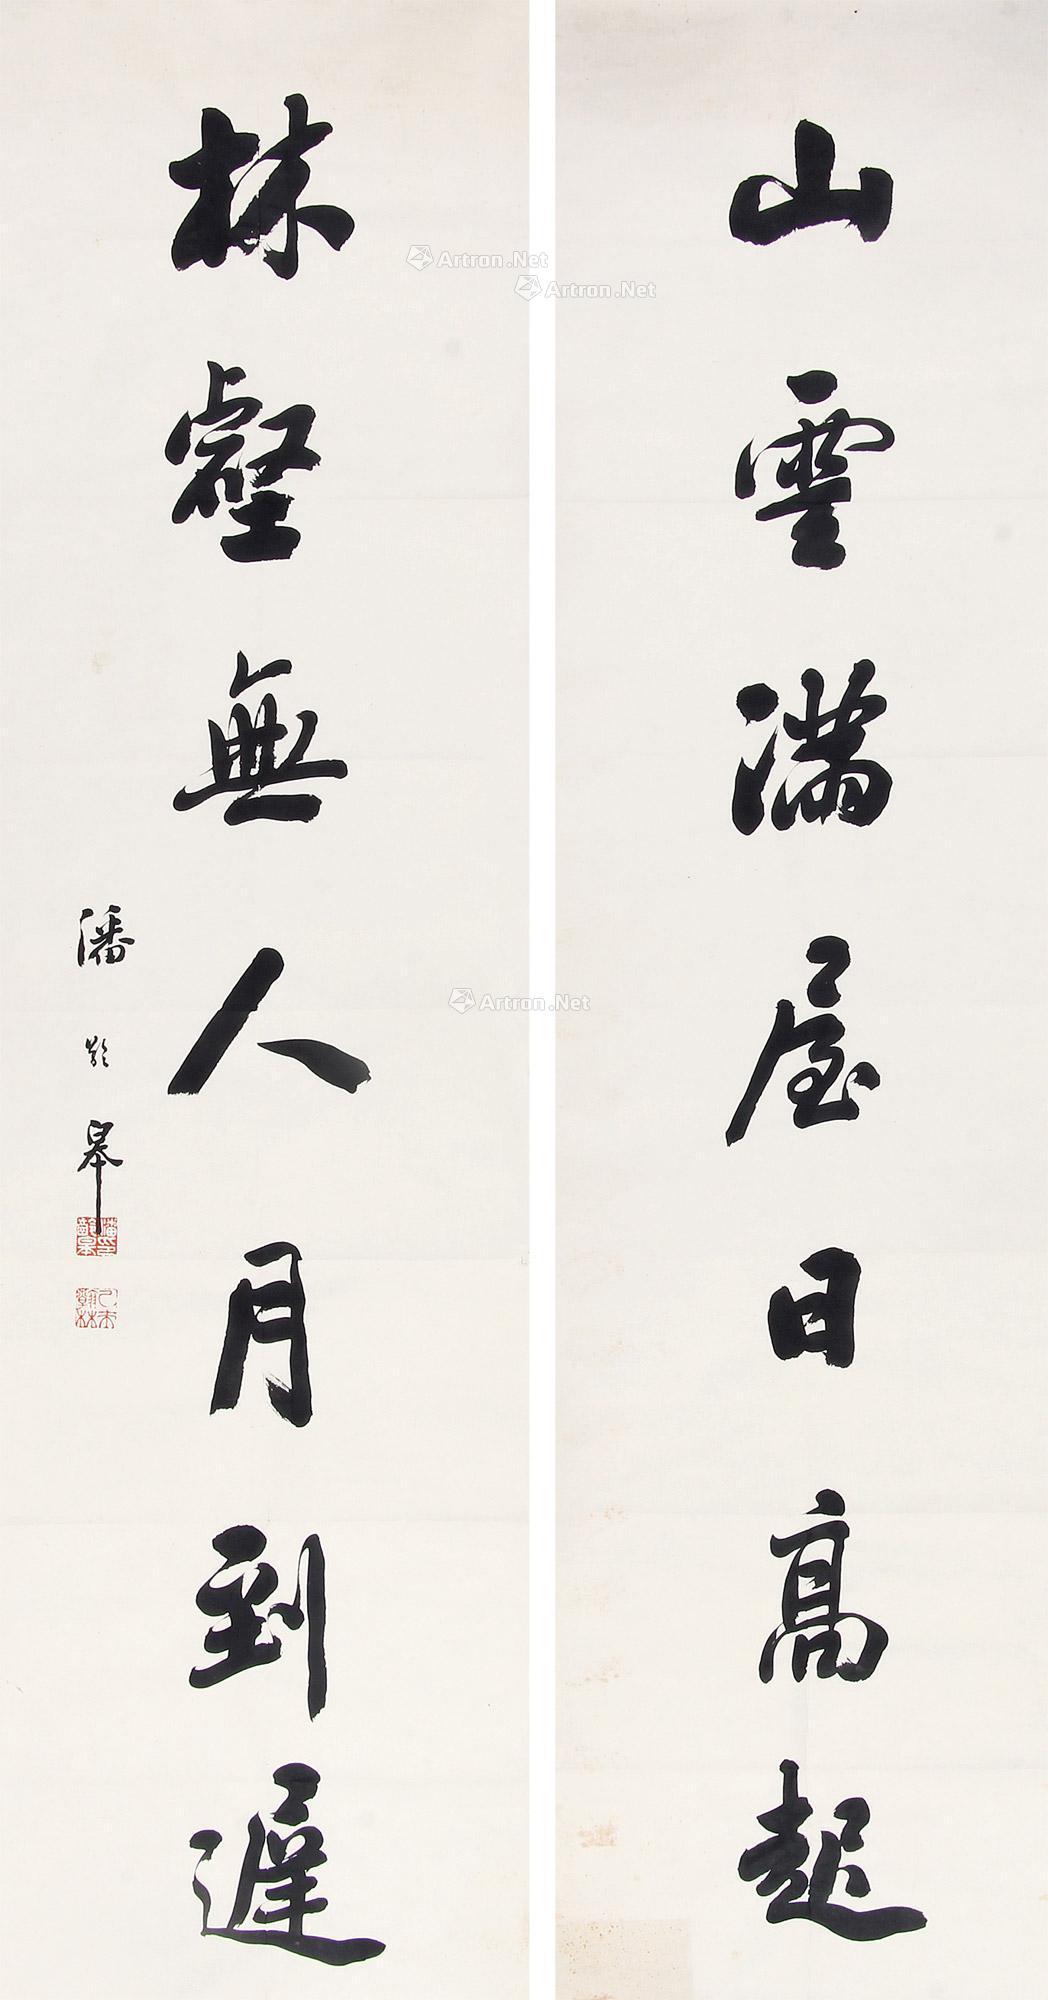 山雲滿屋日高起
林壑無人月到遲
潘齡皋
潘齡皋印
乙未翰林
Artron.Net
Artron.Net
Artron.Net